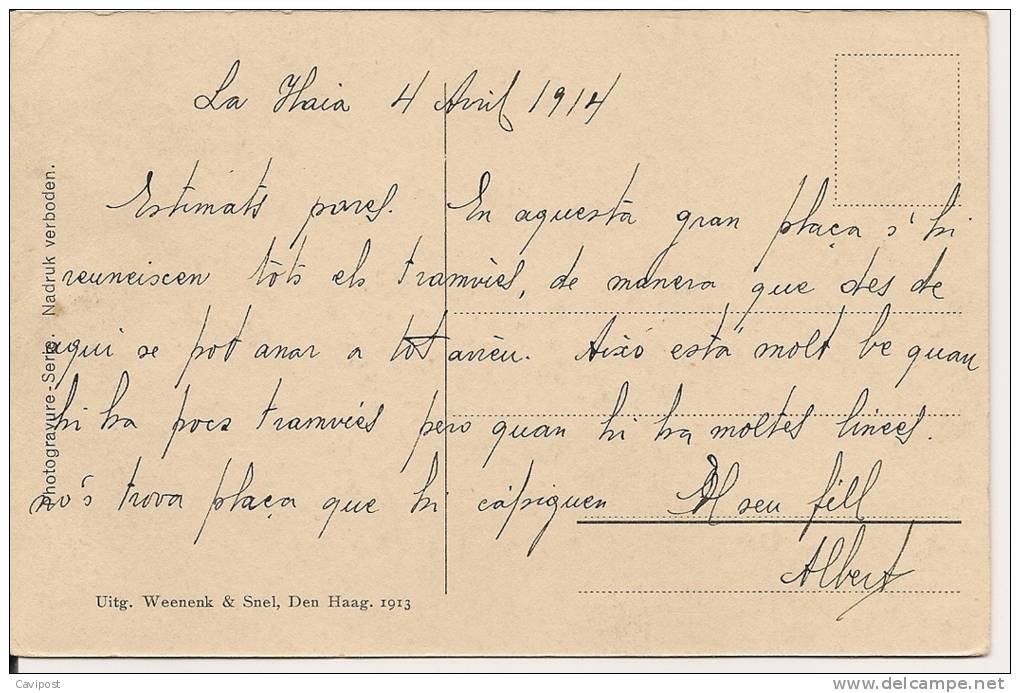 La Haia 4 Avril 1914
Estimats pares. En aquesta gran plaça s'hi
reuneixen tots els tramvies, de manera que des de
aqui se pot anar a tot arreu. Aixó está molt be quan
hi ha pocs tramvies pero quan hi ha moltes linees.
no's trova plaça que hi cápiguen El seu fill
Albert
Photogravure-Serie. Nadruk verboden.
Uitg. Weenenk & Snel, Den Haag. 1913
Cavipost
www.delcampe.net